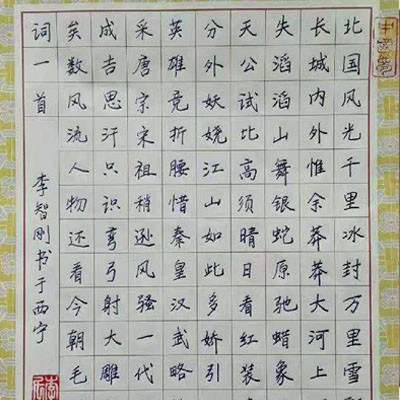 北国风光千里冰封万里雪
长城内外惟余莽莽大河上
失滔滔山舞银蛇原驰蜡象
天公试比高须晴日看红装
分外妖娆江山如此多娇引
英雄竞折腰惜秦皇汉武略
采唐宗宋祖稍逊风骚一代
成吉思汗只识弯弓射大雕
矣数风流人物还看今朝毛
词一首 李智刚书于西宁